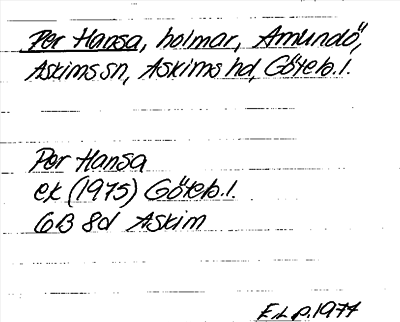 Per Hansa, holmar, Amundö,
Askims sn, Askims hd, Göteb. l.
Per Hansa
ek (1975) Göteb. l.
6B 8d Askim
F. L. P. 1977